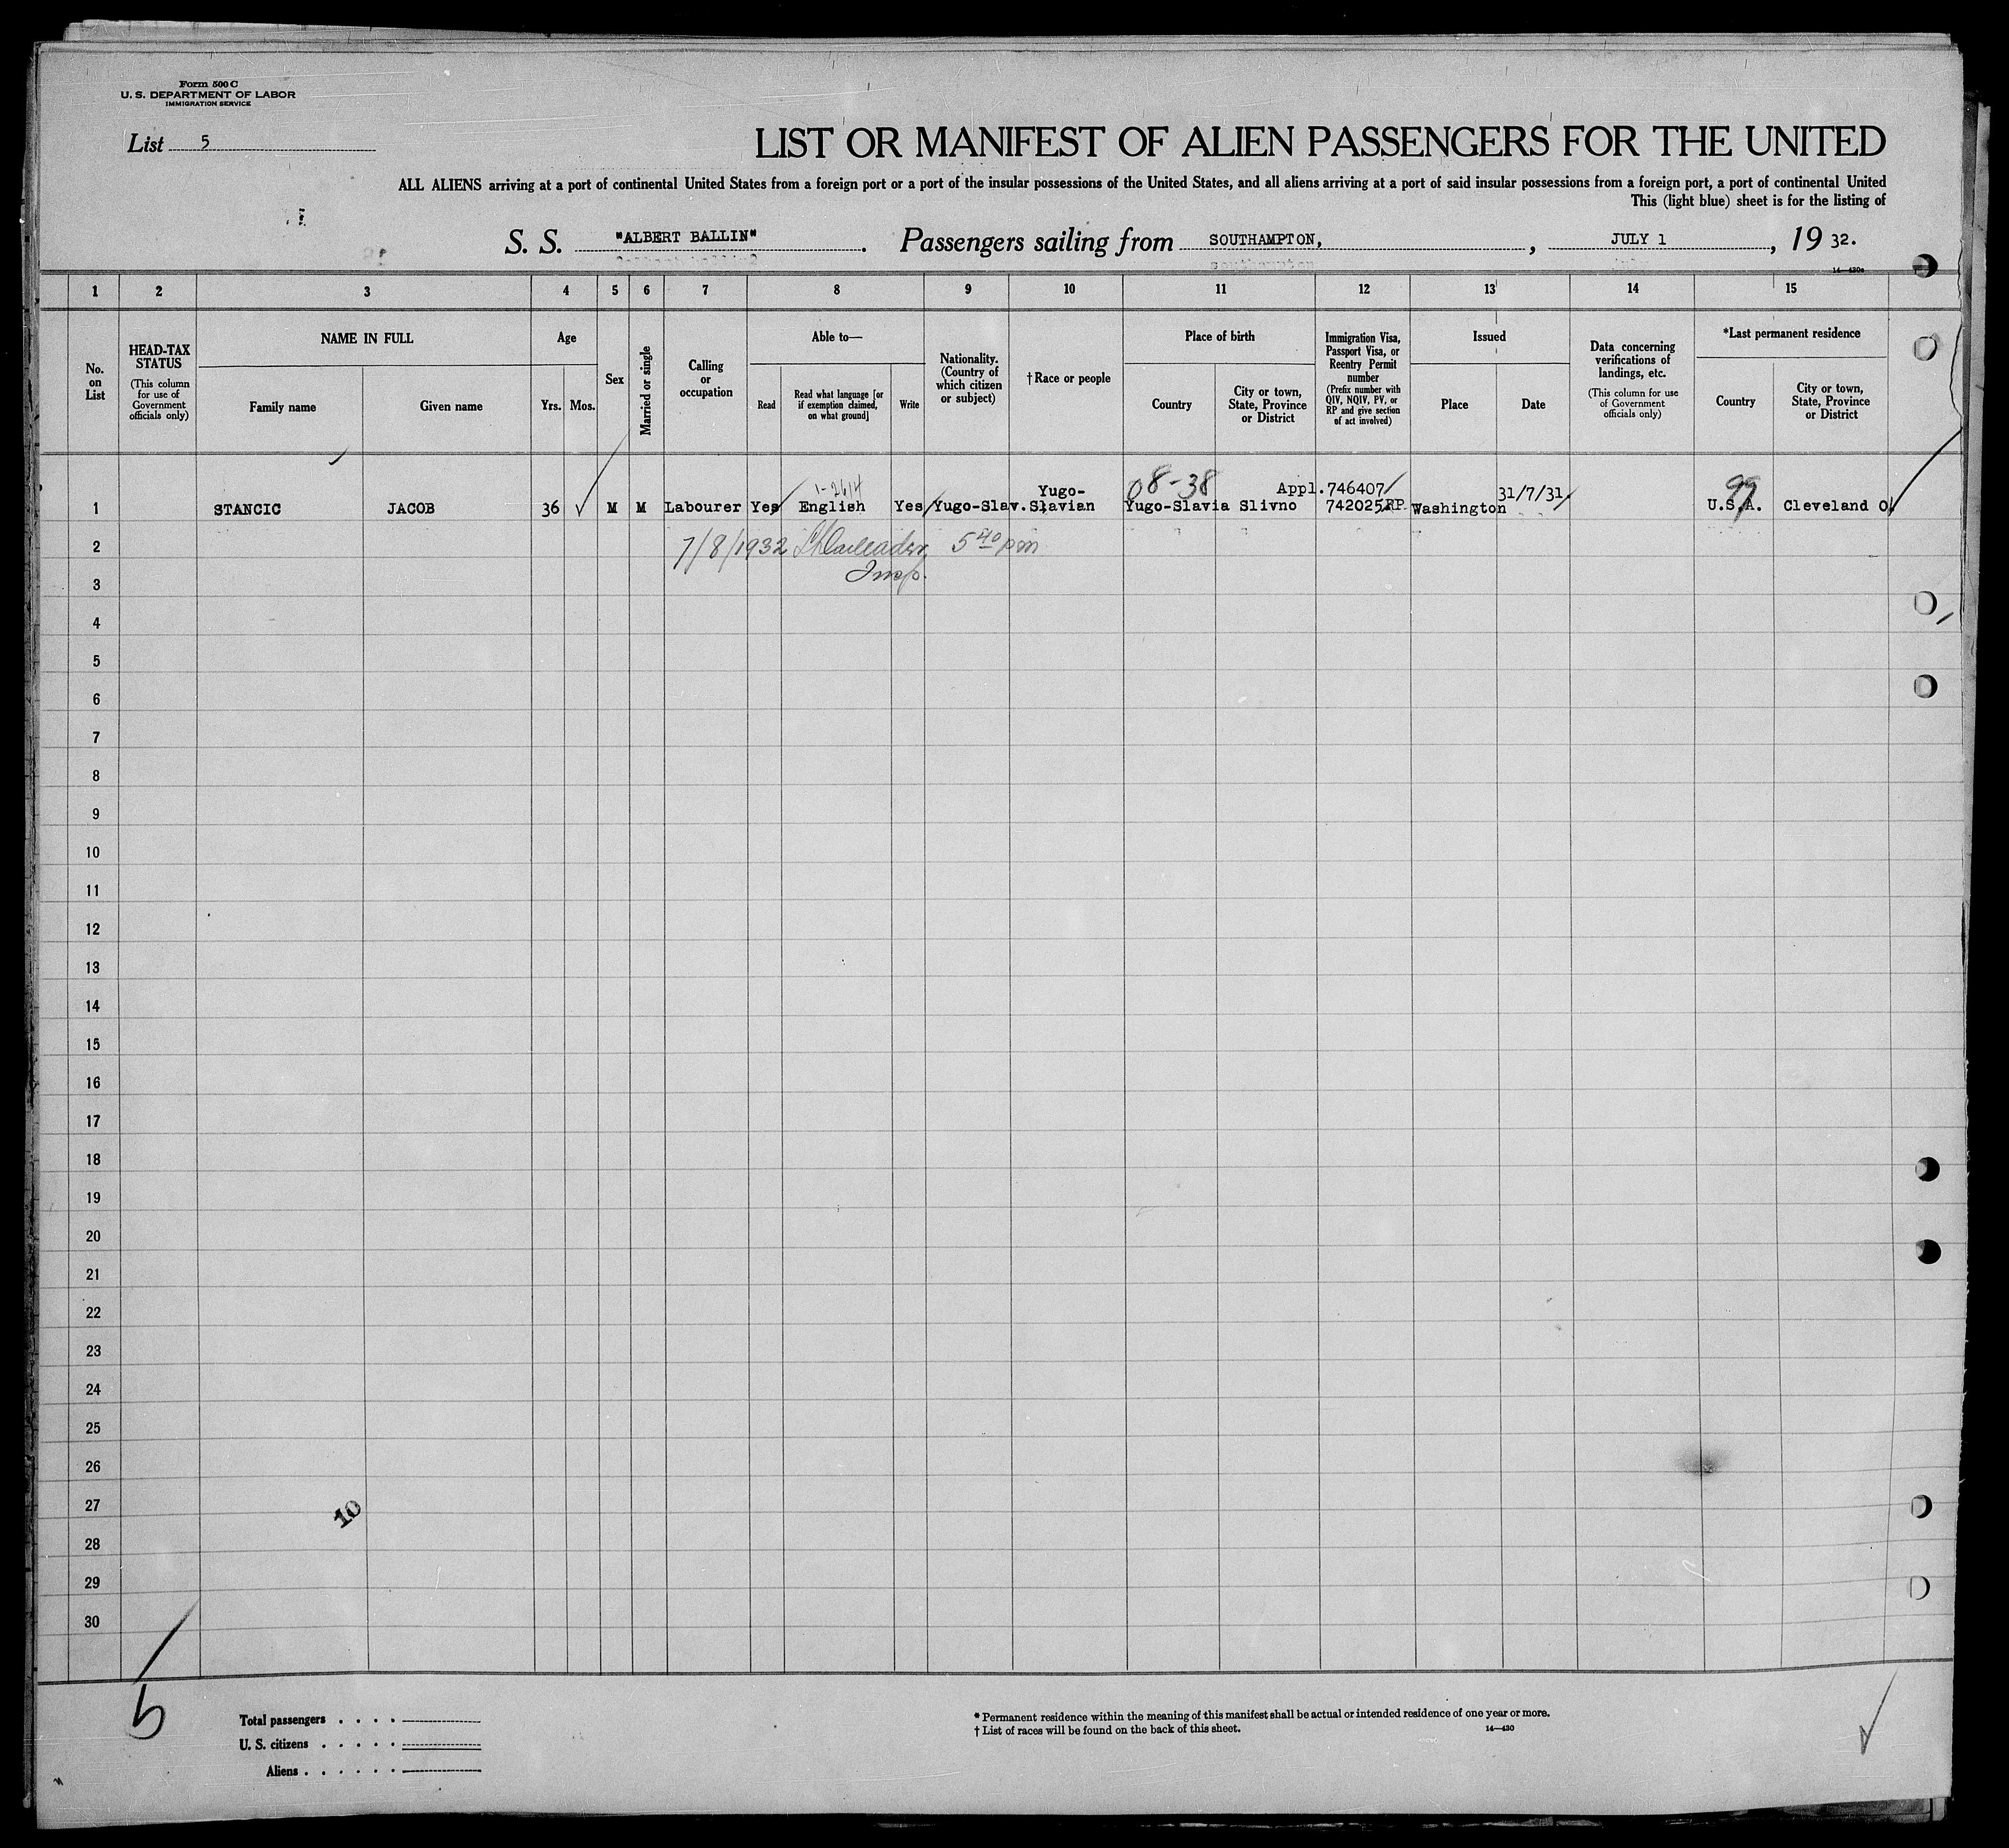 Form 500 C
U. S. DEPARTMENT OF LABOR
IMMIGRATION SERVICE
List 5
LIST OR MANIFEST OF ALIEN PASSENGERS FOR THE UNITED
ALL ALIENS arriving at a port of continental United States from a foreign port or a port of the insular possessions of the United States, and all aliens arriving at a port of said insular possessions from a foreign port, a port of continental United
This (light blue) sheet is for the listing of
S. S. "ALBERT BALLIN". Passengers sailing from SOUTHAMPTON, , JULY 1 , 19 32.
14—430a
1 2 3 4 5 6 7 8 9 10 11 12 13 14 15
No. on List
HEAD-TAX STATUS
(This column for use of Government officials only)
NAME IN FULL
Family name
Given name
Age
Yrs.
Mos.
Sex
Married or single
Calling or occupation
Able to—
Read
Read what language [or if exemption claimed, on what ground]
Write
Nationality. (Country of which citizen or subject)
†Race or people
Place of birth
Country
City or town, State, Province or District
Immigration Visa, Passport Visa, or Reentry Permit number
(Prefix number with QIV, NQIV, PV, or RP and give section of act involved)
Issued
Place
Date
Data concerning verifications of landings, etc.
(This column for use of Government officials only)
*Last permanent residence
Country
City or town, State, Province or District
08-38
99
Yugo- Appl.746407 31/7/31
1 STANCIC JACOB 36 M M Labourer Yes English Yes Yugo-Slav. Slavian Yugo-Slavia Slivno 742025 RP Washington U.S.A. Cleveland O.
2 7/8/1932 5 40 pm
3 Insp.
4
5
6
7
8
9
10
11
12
13
14
15
16
17
18
19
20
21
22
23
24
25
26
27
10
28
29
30
5
Total passengers . . . .
U. S. citizens . . . . .
Aliens . . . . . .
* Permanent residence within the meaning of this manifest shall be actual or intended residence of one year or more.
† List of races will be found on the back of this sheet.
14—430